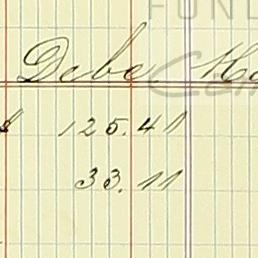 FUND
Debe Ha
125.41
33.11